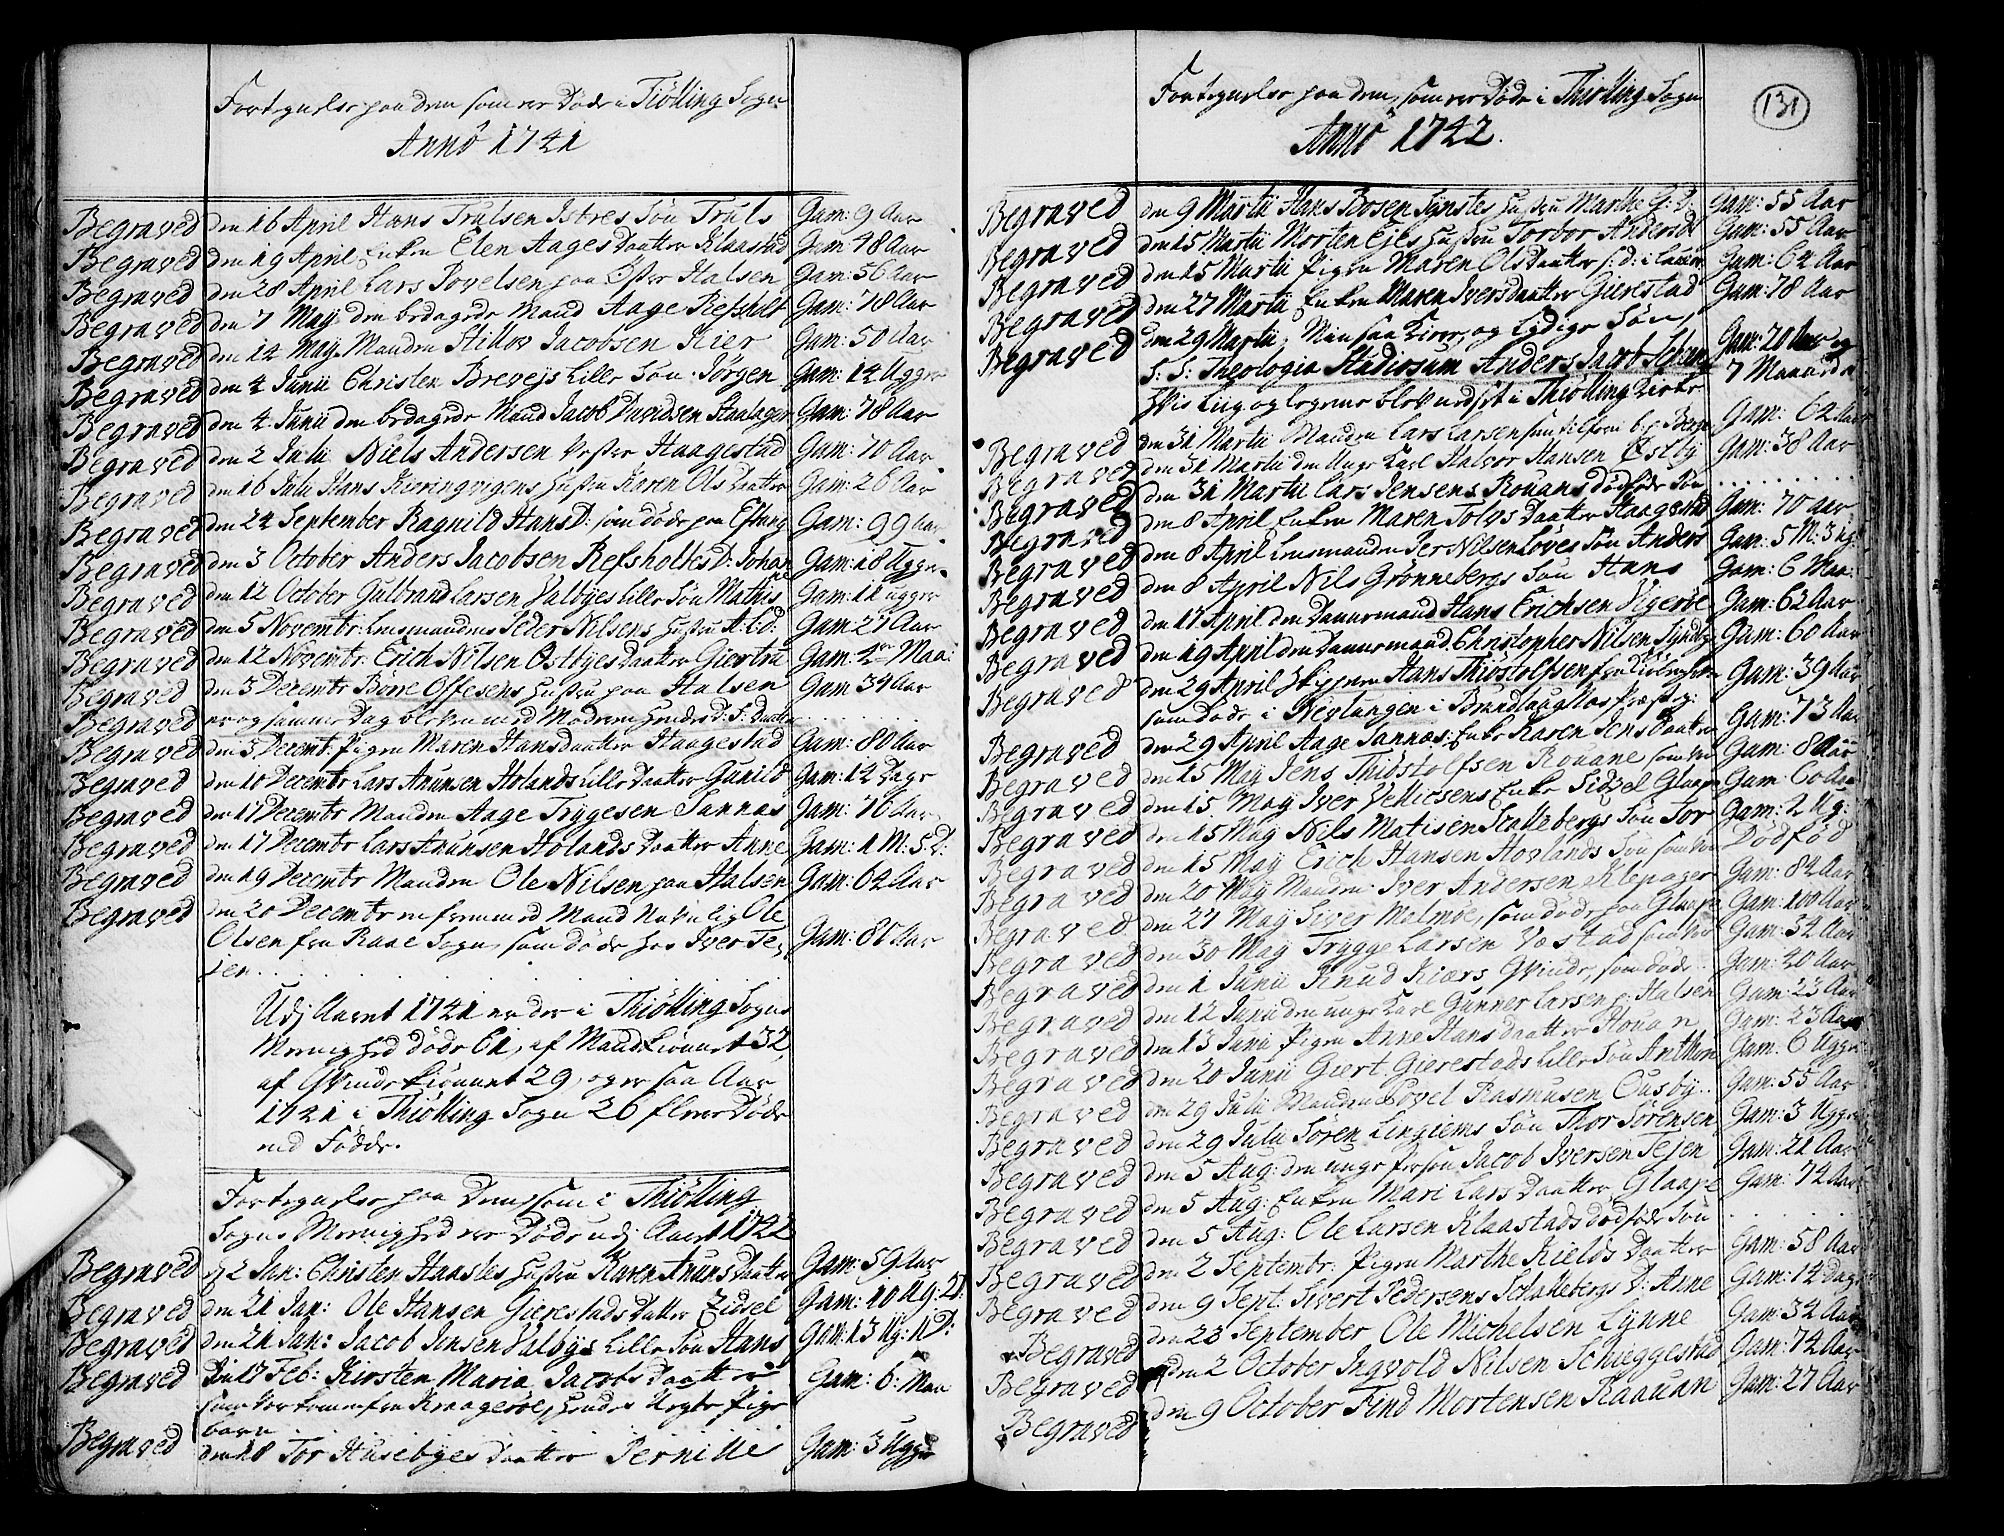 Fortegnelse paa dem som ere Døde i Tiølling Sogn
Anno 1741
Begraved den 16 April Hans Trulsen Istres Søn Truls Gam: 9 Aar
Begraved den 19 April Enken Elen Aages Daatter Klaastad Gam 48 Aar
Begraved den 28 April Lars Povelsen paa Øster Halsen Gam: 56 Aar
Begraved den 7 Maij den bedagede Mand Aage Refsholt Gam: 78 Aar
Begraved den 14 Maij Manden Hillov Jacobsen Kier Gam: 50 Aar
Begraved den 4 Junii Christen Brevejs Lille Søn Jørgen Gam: 14 Ugger
Begraved den 4 Junii den bedagede Mand Jacob Davidsen Haalager Gam: 78 Aar
Begraved den 2 Julii Niels Andersen Vester Haagestad Gam: 70 Aar
Begraved den 16 Julii Hans Kieringvigens Hustru Karen Ols Daatter Gam: 26 Aar
Begraved den 24 September Ragnild Hans D: som døde paa Eftang Gam: 99 Aar
Begraved den 3 October Anders Jacobsen Refsholts D: Johanne Gam: 18 Ugger
Begraved den 12 October Gulbrand Larsen Valbyes Lille Søn Mathis Gam: 11 ugger
Begraved den 5 Novembr: Lensmandens Peder Nilsens Hustru A: L: D: Gam 27 Aar
Begraved den 12 Novembr: Erich Nilsen Østbyes Daatter Giertru Gam: Maa:
Begraved den 3 Decembr Børre Offesens Hustru paa Halsen Gam 34 Aar
Begraved er og samme Dag bleven med Moderen hendes D: F: Daatter
Begraved den 3 Decemt: Pigen Maren Hansdaatter Haagestad Gam: 80 Aar
Begraved den 10 Decembr Lars Anunsen Holands Lille Daatter Gunild Gam: 12 Dage
Begraved den 17 Decembr Manden Aage Tryggesen Sannas Gam: 76 Aar
Begraved den 17 Decembr Lars Anunsen Holands Daatter Anne Gam: 1 M: 5 D:
Begraved den 19 Decembr Manden Ole Nilsen paa Halsen Gam: 64 Aar
Begraved den 20 Decembr en fremmed Mand Navnlig Ole
Olsen fra Raae Sogn, som døde hos Iver Te- Gam: 80 Aar
jen
Udj Aaret 1741 er der i Thiølling Sogns
Menighed døde 61, af Mandkiønnet 32,
af Qvindekiønnet 29, og er saa Aar
1741 i Thiølling Sogn 26 flere Døde
end Fødde.
Fortegnelse paa Dem, som i Thiølling
Sogns Menighed ere Døde udj Aaret 1742
Begraved d. 2 Jan: Christen Haastes Hustru Karen Anuns Daatter Gam: 59 Aar
Begraved den 21 Jan: Ole Hansen Gierestads Datter Zidsel Gam: 10 Ug: 2 D:
Begraved den 21 Jan: Jacob Jensen Valbyes Lille Søn Hans Gam: 13 Ug: 1 D:
Begraved Den 17 Feb: Kirsten Maria Jacobs Daatter Gam: 6: Maa
som var kommen fra Kraagerøe, hendes Uegte Pige
barn
Begraved den 18 Tor Husebyes Daatter Pernille Gam: 3 Ugger
131
Fortegnelse paa dem, som ere Døde i Thiølling Sogn
Anno 1742.
Begraved den 9 Martii Hans Bosen Synstes Hustru Marthe G: D: Gam: 55 Aar
Begraved den 15 Martii Morten Ejes Hustru Torbor Andersd Gam: 55 Aar
Begraved den 15 Martii Pigen Maren Ols Daatter Gam: 64 Aar
Begraved den 27 Martii Enken Maren Ivers Daatter Gierestad Gam: 78 Aar
Begraved den 29 Martii, Min saa kiere og Lydige Søn,
S: S: Theologiæ Studiosum Anders Jacob Gam: 20 Aar og
hvis Liig og Legeme blev nedsat i Thiølling Kirke 7 Maaneder
Begraved den 31 Martii Manden Lars Larsen Gam: 64 Aar
Begraved den 31 Martii den Unge Karl Halvor Hansen Østby Gam: 38 Aar
Begraved den 31 Martii Lars Jensens Rouans dødføde Søn
Begraved den 8 April Enken Maren Tolvs Daatter Haagestad Gam: 70 aar
Begraved den 8 April Lensmanden Per Nilsen Løves Søn Anders Gam: 5 M: 3 Ug:
Begraved den 8 April Nils Grønnebergs Søn Hans Gam: 6 Maa:
Begraved den 17 April den Dannemand Hans Erichsen Vigerøe Gam: 62 Aar
Begraved den 19 April den Dannemand Christopher Nilsen Synbye Gam: 60 Aar
Begraved den 29 April Skipperen Hans Thiostolfsen fra Gam: 39 Aar
som døde i Nevlungen i Brundlaugnæs Præstg:
Begraved den 29 April Aage Sannæs Enke Karen Jens Daatter Gam: 73 Aar
Begraved den 15 Maij Jens Thiostolfsen Rouane Gam: 8 Aar
Begraved den 15 Maij Iver Vettesens Enke Sidsel Glaape Gam: 60 Aar
Begraved den 15 Maij Nils Matisen Skallebergs Søn Tor Gam: 2 Ug:
Begraved den 15 Maij Erich Hansen Hovlands Søn som var Dødfød
Begraved den 20 Maij Manden Iver Andersen Klepager Gam: 84 Aar
Begraved den 27 Maij Siver Malmøe, som døde paa Glaape Gam: 100 Aar
Begraved den 30 Maij Trygge Larsen Vestad Gam: 34 Aar
Begraved den 1 Junii Knud Kiærs Qvinde, som døde Gam: 40 Aar
Begraved den 12 Junii den unge Karl Gunner Larsen p: Halsen Gam: 23 Aar
Begraved den 13 Junii Pigen Anne Hans Daatter Houan Gam: 23 Aar
Begraved den 20 Junii Giert Gierestads Lille Søn Anthon Gam: 6 Ugger
Begraved den 29 Julii Manden Povel Rasmusen Ousby Gam: 55 Aar
Begraved den 29 Julii Søren Lingiems Søn Thor Sørensen Gam: 3 Ugger
Begraved den 5 Aug: den unge Person Jacob Iversen Tejen Gam: 21 Aar
Begraved den 5 Aug: Enken Mari Lars Daatter Glaape Gam: 74 Aar
Begraved den 5 Aug: Ole Larsen Klaastads dødføde Søn
Begraved den 2 Septembr: Pigen Marthe Kields Daatter Gam: 58 Aar
Begraved den 9 Sept: Sivert Pedersens Schallebergs D: Anne Gam: 14 dage
Begraved den 23 September Ole Michelsen Lynne Gam: 34 Aar
Begraved den 2 October Ingvold Nilsen Schiggestad Gam: 74 Aar
Begraved den 9 October Find Mortensen Raauan Gam: 27 Aar